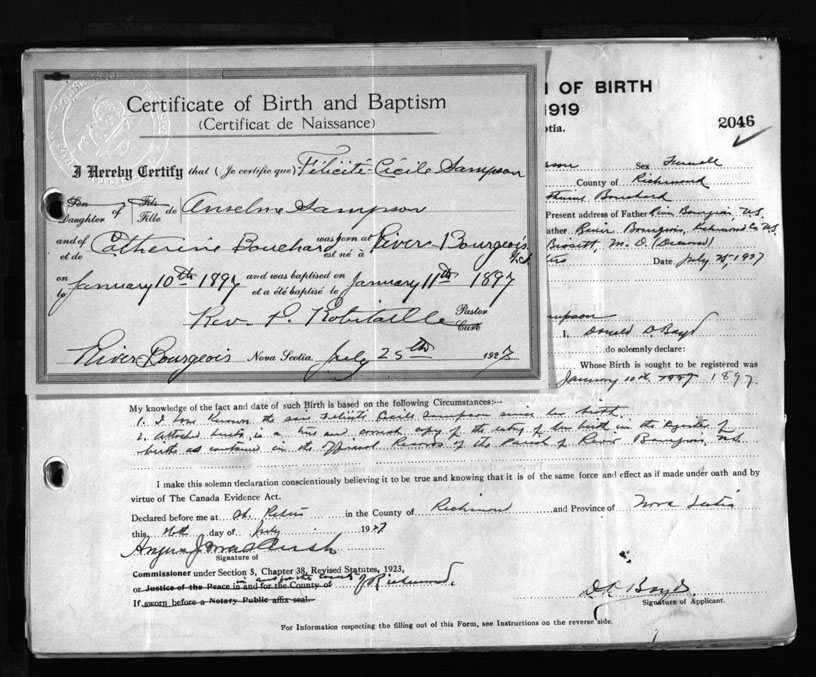 Certificate of Birth and Baptism
(Certificat de Naissance)
I Hereby Certify that (Je certifie que) Félicité Cécile Sampson
Son Fils
Daughter of Fille de Anselme Sampson
and of et de Catherine Bouchard was born at est né à River Bourgeois N.S.
on le January 10th 1897 and was baptised on et a été baptisé le January 11th 1897
Rev. P. Robitaille Pastor Curé
River Bourgeois Nova Scotia. July 25th 1927
N OF BIRTH
1919
otia.
2046
Sex Female
County of Richmond
Bouchard
Present address of Father River Bourgeois, N.S.
ather River Bourgeois, Richmond Co. N.S.
Bissett, M. D. (Deceased)
Date July 25, 1927
I, Donald D. Boyd
do solemnly declare:
Whose Birth is sought to be registered was
January 10th 1897
My knowledge of the fact and date of such Birth is based on the following Circumstances:—
1. I have known the said Felicité Cecile Sampson since her birth.
2. Attached hereto is a true and correct copy of the entry of her birth in the Register of
births as contained in the Official Records of the Parish of River Bourgeois, N.S.
I make this solemn declaration conscientiously believing it to be true and knowing that it is of the same force and effect as if made under oath and by
virtue of The Canada Evidence Act.
Declared before me at St. Peters in the County of Richmond and Province of Nova Scotia
this day of July 1927
Angus J.
Signature of
Commissioner under Section 5, Chapter 38, Revised Statutes, 1923,
or Justice of the Peace in and for the County of Richmond.
If sworn before a Notary Public affix seal.
D. D. Boyd
Signature of Applicant.
For Information respecting the filling out of this Form, see Instructions on the reverse side.